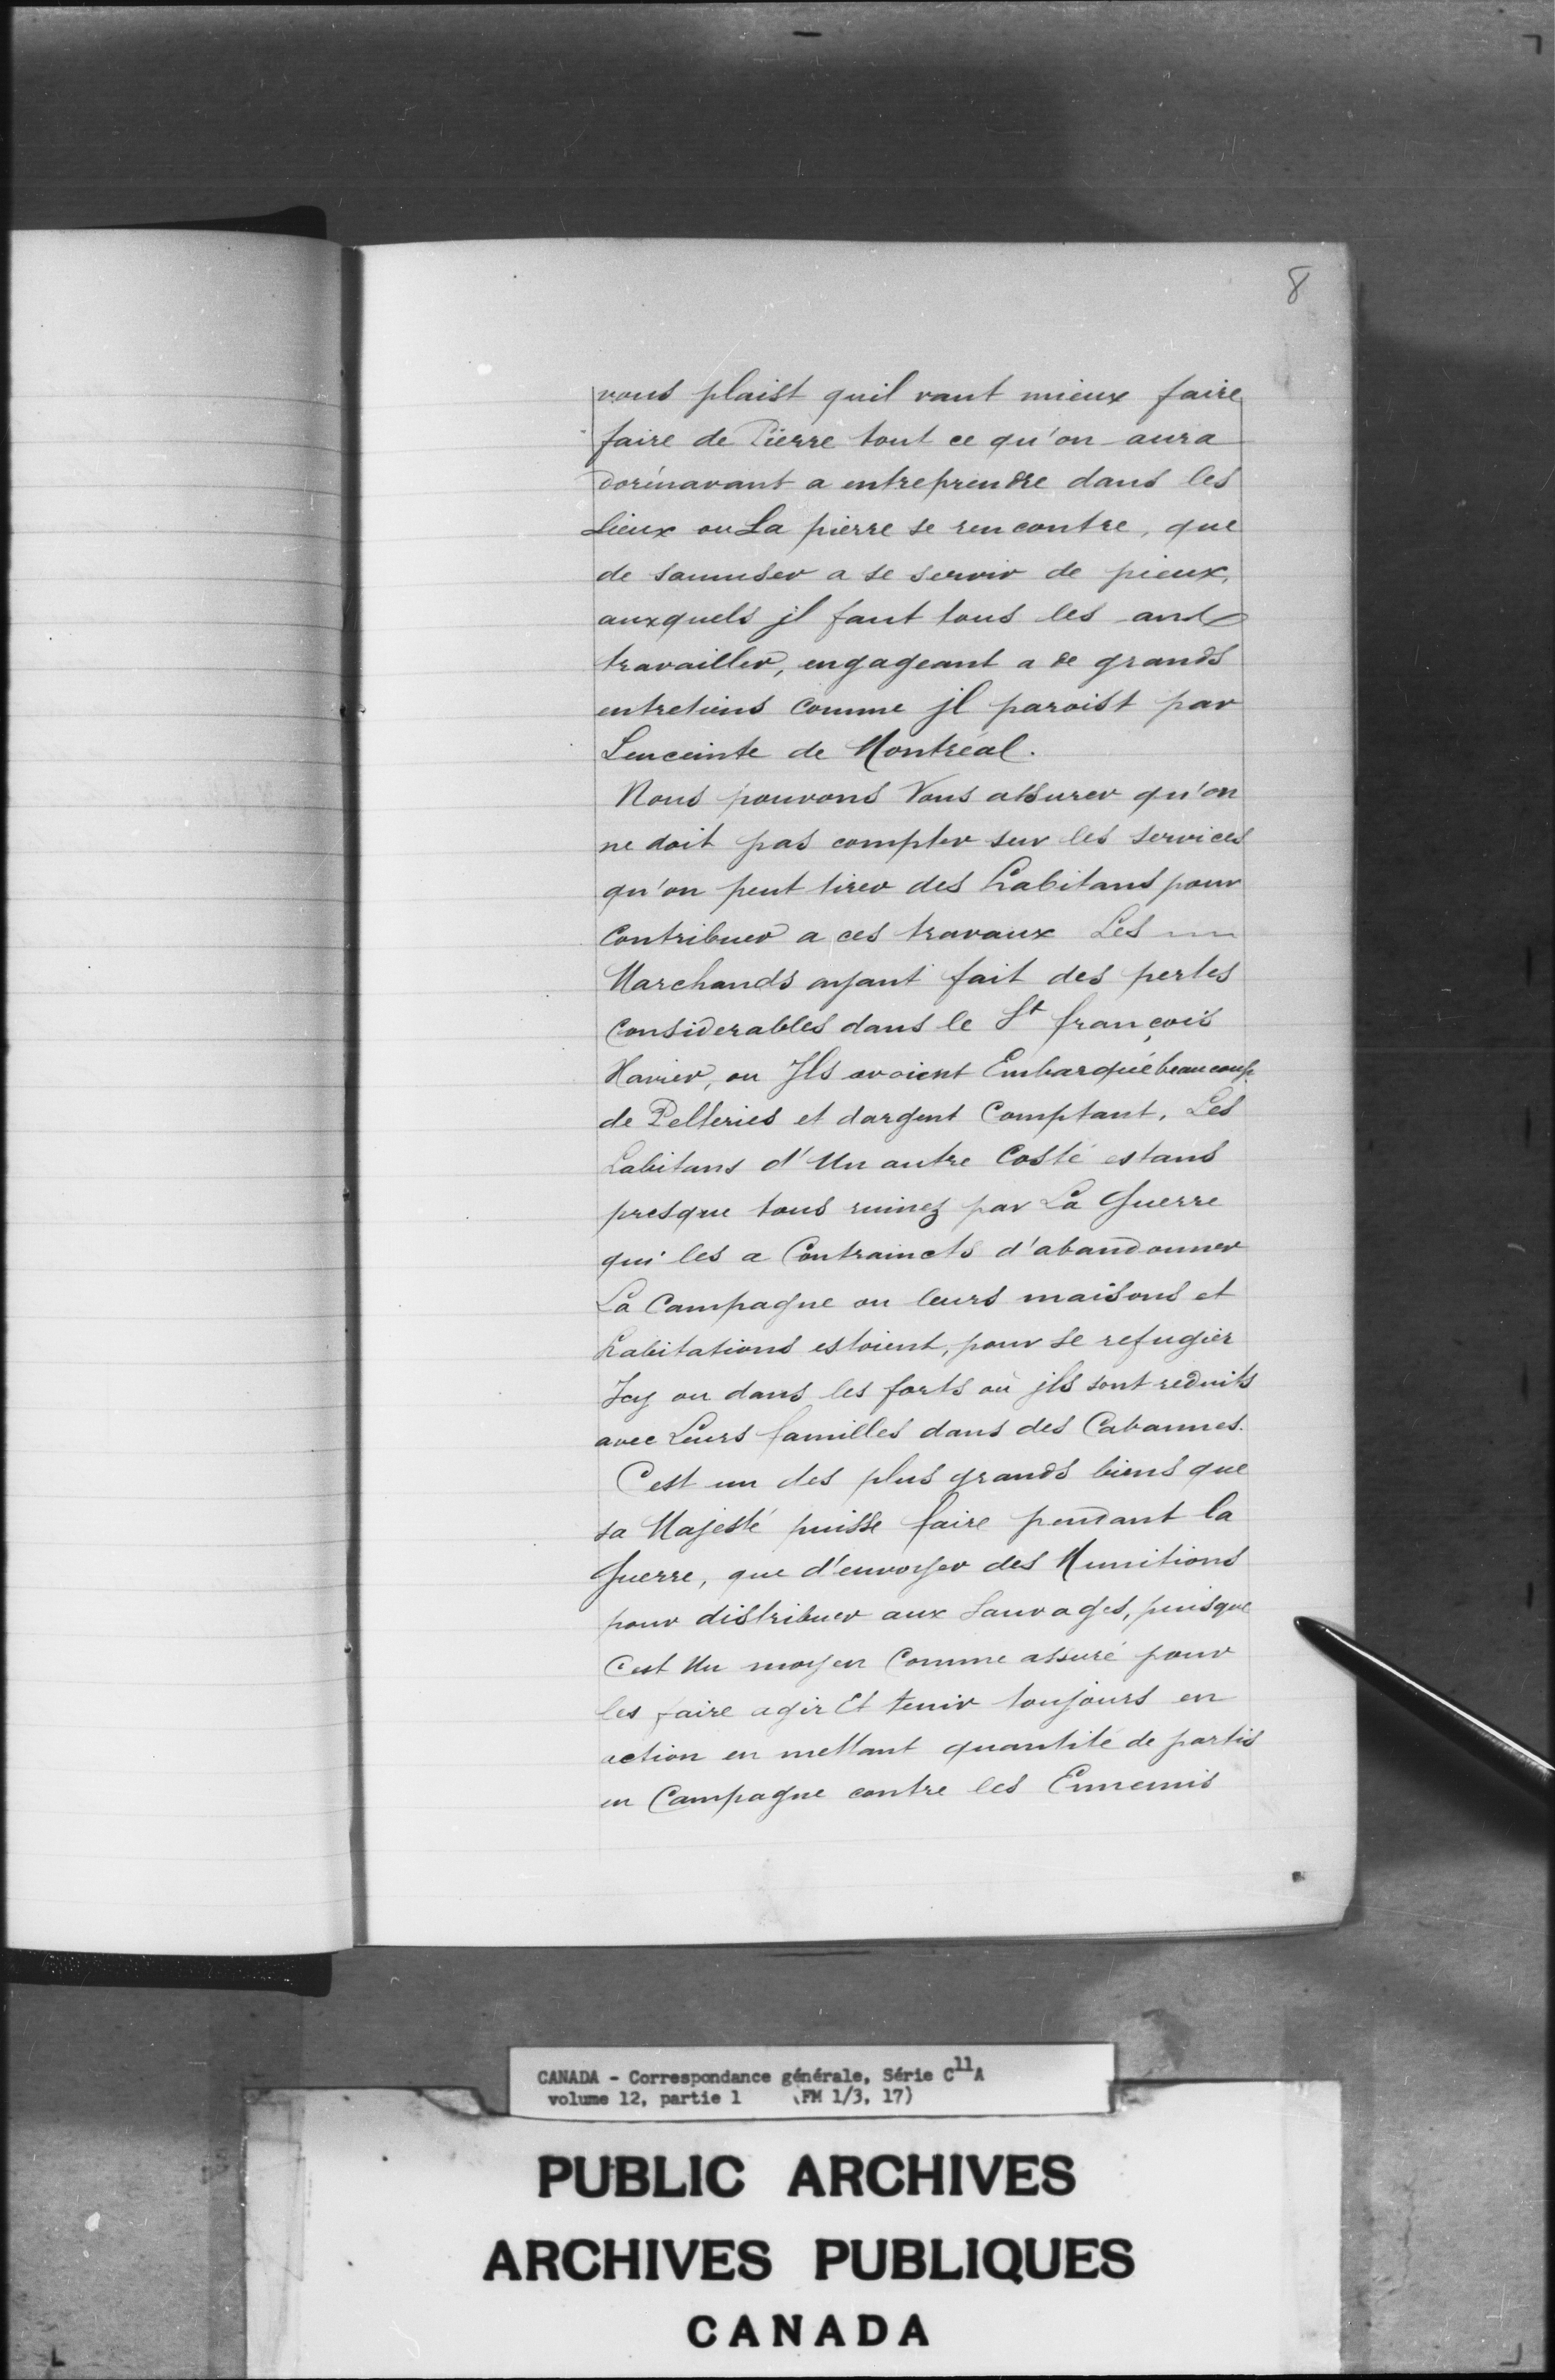 8
vous plaist quil vaut mieux faire
faire de Pierre tout ce qu'on aura
dorénavant a entreprendre dans les
lieux ou La pierre se rencontre, que
de samuser a se servir de pieux,
auxquels jl faut tous les ans
travailler, engageant a de grands
entretiens comme jl paroist par
Lenceinte de Montréal.
Nous pouvons Vous assurer qu'on
ne doit pas compter sur les services
qu'on peut tirer des habitans pour
Contribuer a ces travaux Les
Marchands ayant fait des pertes
Considerables dans le St françois
Xavier, ou Jls avoient Embarqué beaucoup
de Pelteries et dargent Comptant. Les
habitans d'Un autre Costé estans
presque tous ruinez par La Guerre
qui les a Contraincts d'abandonner
La Campagne ou leurs maisons et
habitations estoient, pour se refugier
Jcy ou dans les forts où jls sont reduits
avec Leurs familles dans des Cabannes.
C'est un des plus grands biens que
sa Majesté puisse faire pendant la
Guerre, que d'envoyer des Munitions
pour distribuer aux Sauvages, puisque
C'est Un moyen Comme assuré pour
les faire agir Et tenir toujours en
action en mettant quantité de partis
en Campagne contre les Ennemis
CANADA - Correspondance générale, Série C11A
volume 12, partie 1 (FM 1/3, 17)
PUBLIC ARCHIVES
ARCHIVES PUBLIQUES
CANADA